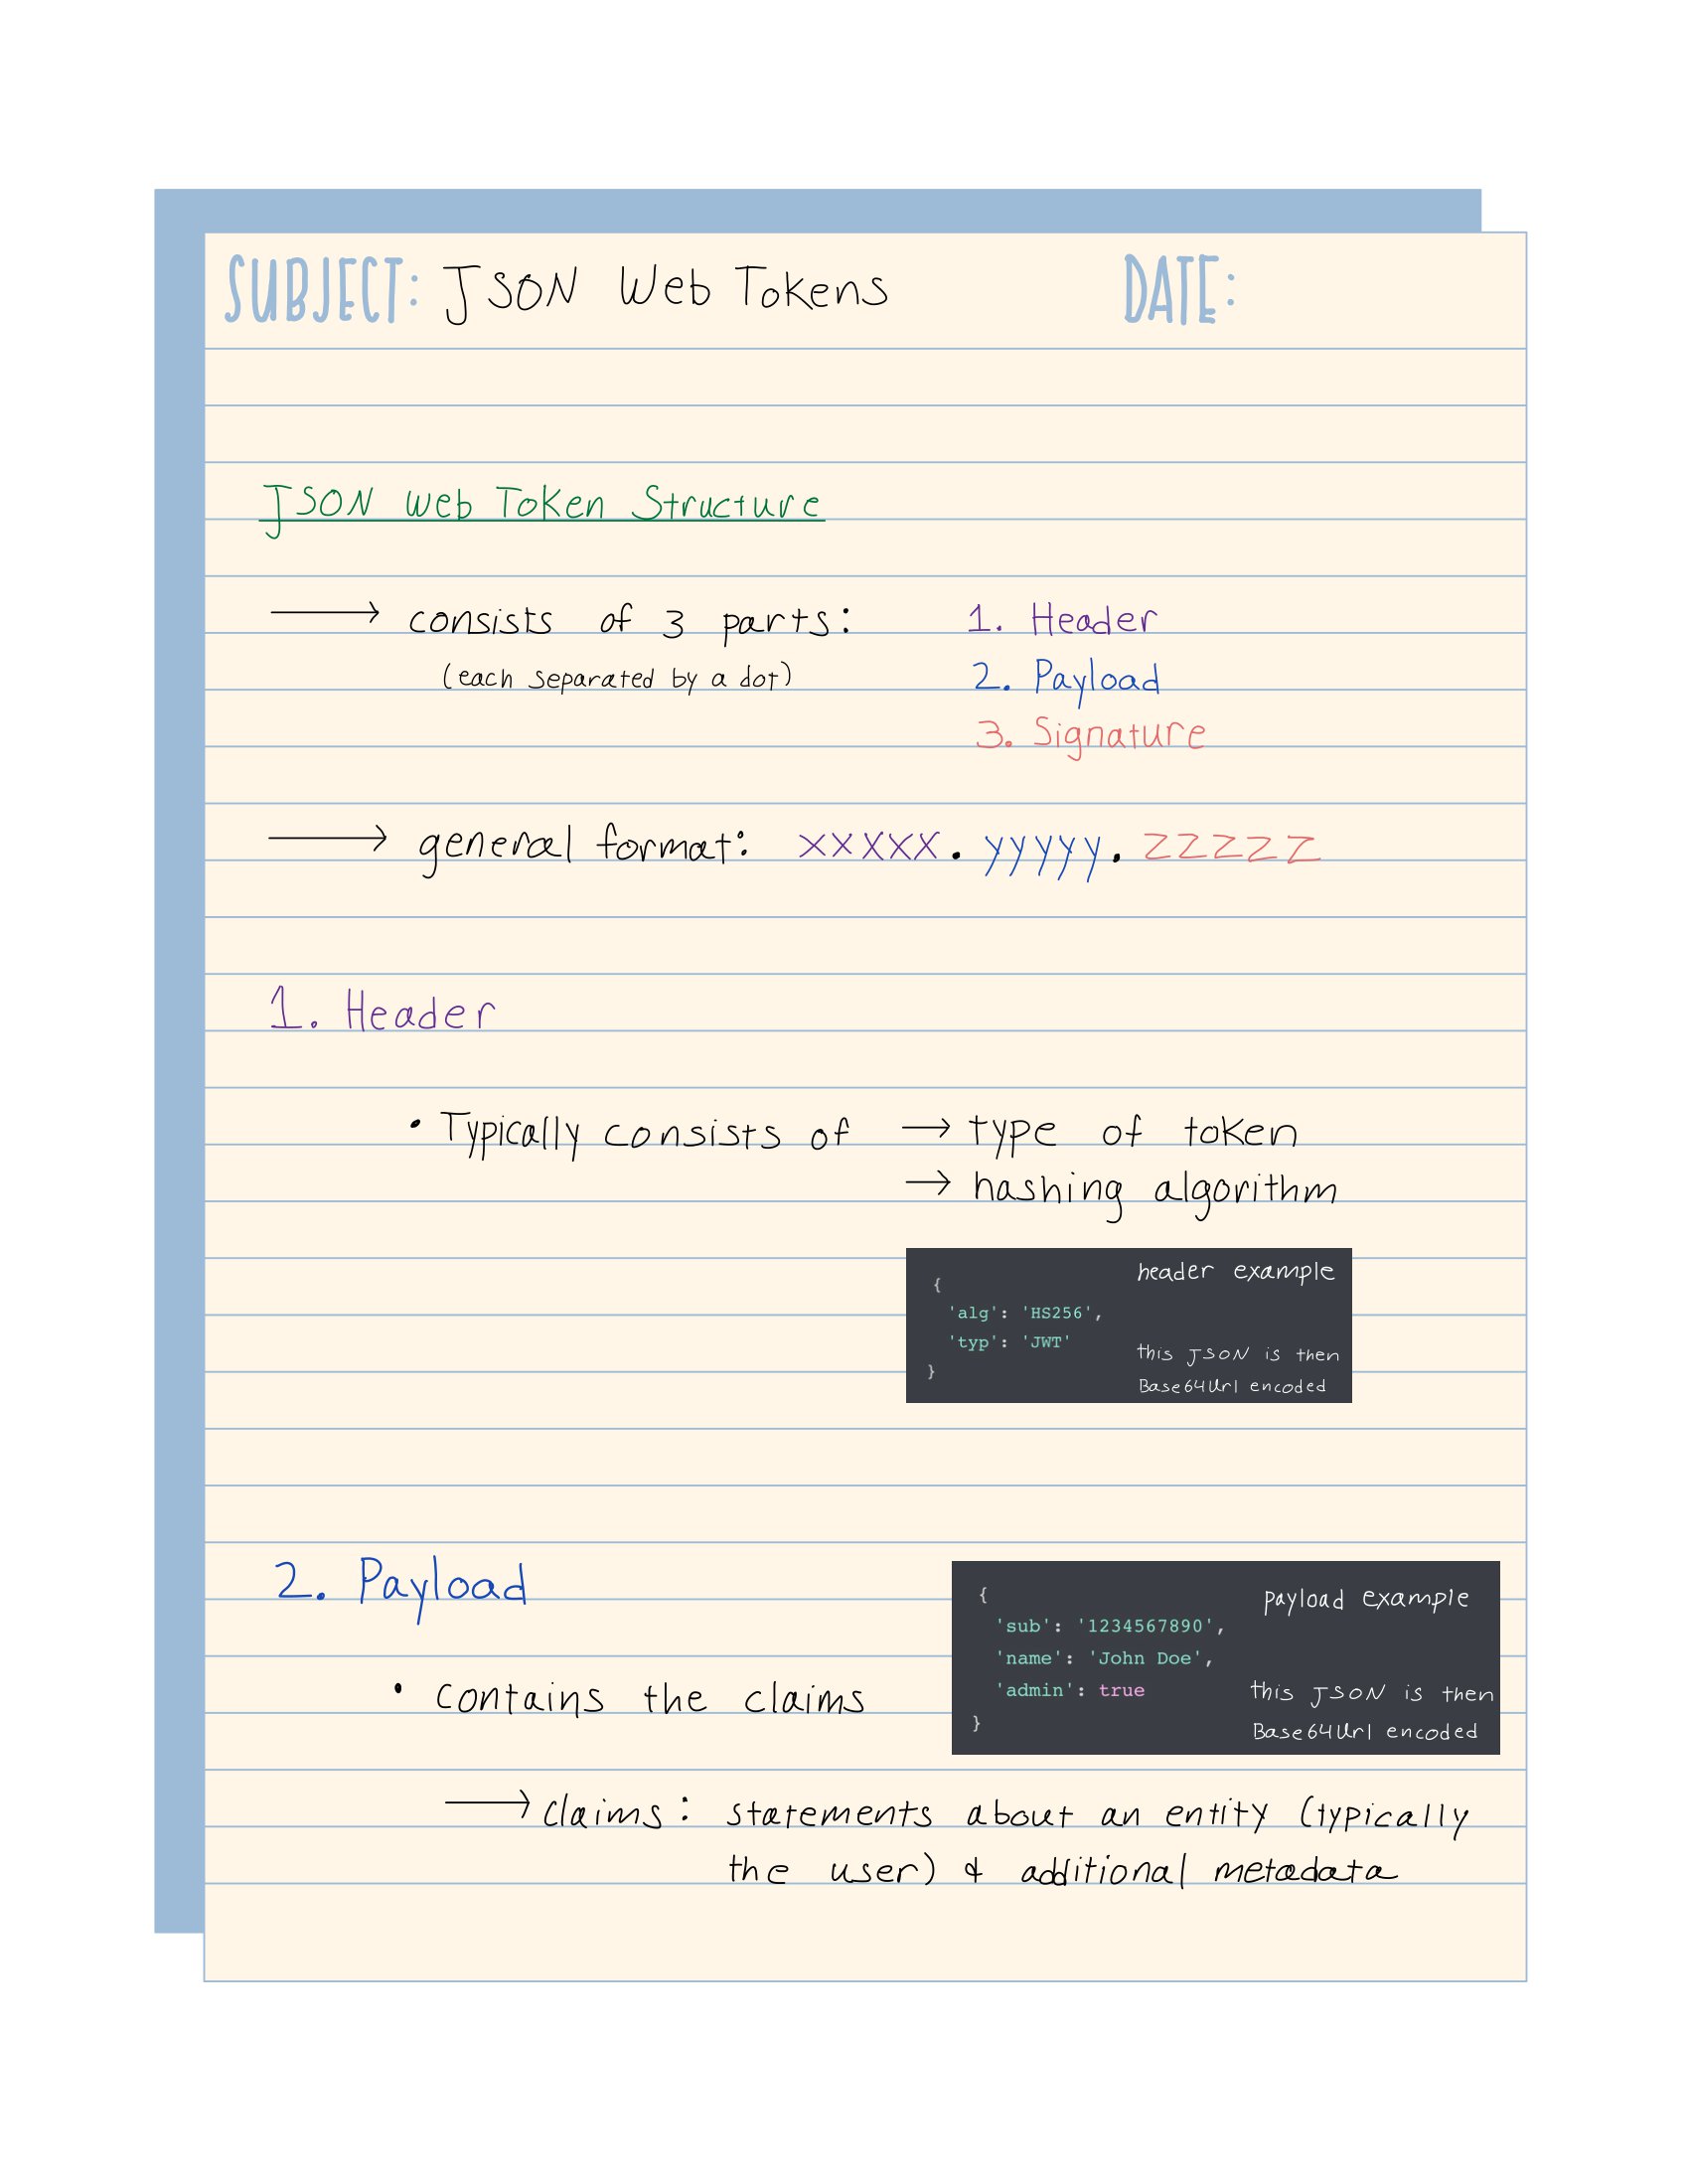 SUBJECT: JSON Web Tokens DATE:
JSON Web Token Structure
→ consists of 3 parts: 1. Header
(each separated by a dot) 2. Payload
3. Signature
→ general format: xxxxx.yyyyy.zzzzz
1. Header
• Typically consists of → type of token
→ hashing algorithm
header example
{
'alg': 'HS256',
'typ': 'JWT'
}
this JSON is then
Base64Url encoded
2. Payload
• contains the claims
payload example
{
'sub': '1234567890',
'name': 'John Doe',
'admin': true
}
this JSON is then
Base64Url encoded
→ claims: statements about an entity (typically
the user) & additional metadata